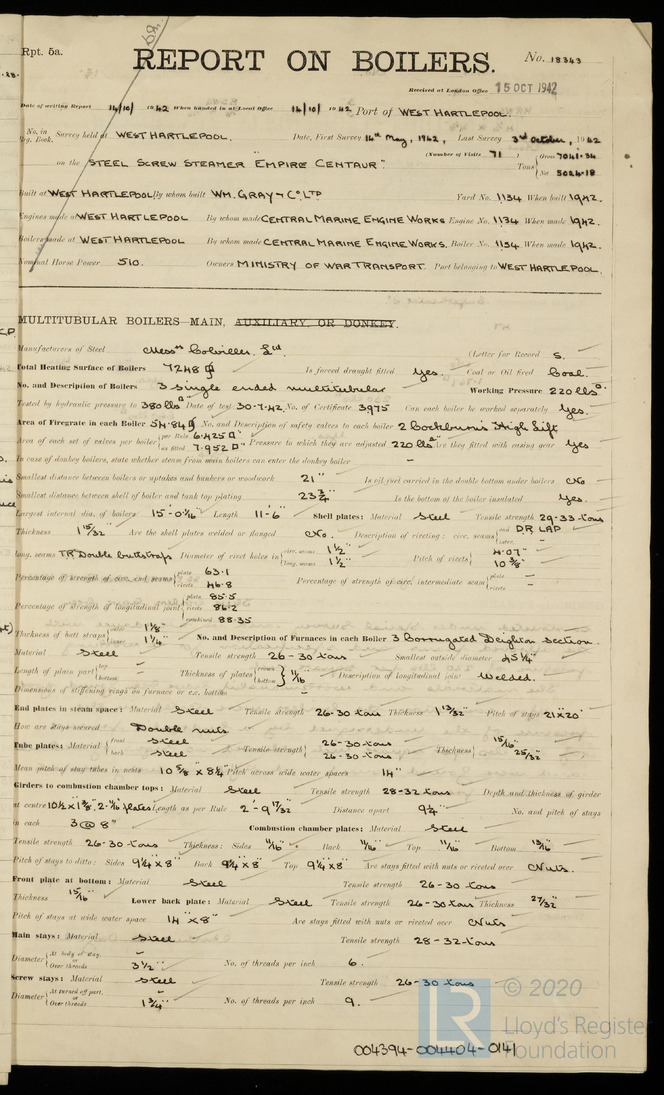 Rpt. 5a.
REPORT ON BOILERS.
No. 18343
Received at London Office 15 OCT 1942
Date of writing Report 14/10/ 1942 When handed in at Local Office 14/10/ 1942 Port of WEST HARTLEPOOL.
No. in Reg. Book. Survey held at WEST HARTLEPOOL. Date, First Survey 14th May, 1942, Last Survey 3rd October, 1942
(Number of Visits 71)
on the "STEEL SCREW STEAMER "EMPIRE CENTAUR" Tons Gross 7041.34 Net 5024.18
Built at WEST HARTLEPOOL By whom built WM. GRAY & Co. LTD Yard No. 1134 When built 1942.
Engines made at WEST HARTLEPOOL By whom made CENTRAL MARINE ENGINE WORKS Engine No. 1134 When made 1942.
Boilers made at WEST HARTLEPOOL By whom made CENTRAL MARINE ENGINE WORKS. Boiler No. 1134 When made 1942.
Nominal Horse Power 510. Owners MINISTRY OF WAR TRANSPORT. Port belonging to WEST HARTLEPOOL.
MULTITUBULAR BOILERS—MAIN, AUXILIARY, OR DONKEY.
Manufacturers of Steel Messrs Colvilles. Ltd. (Letter for Record S.
Total Heating Surface of Boilers 7248 Is forced draught fitted Yes. Coal or Oil fired Coal.
No. and Description of Boilers 3 Single ended multitubular Working Pressure 220 lbs
Tested by hydraulic pressure to 380 lbs Date of test 30.7.42 No. of Certificate 3975 Can each boiler be worked separately Yes.
Area of Firegrate in each Boiler 54.84 No. and Description of safety valves to each boiler 2 Cockburn's High Lift
Area of each set of valves per boiler per Rule 6.425 as fitted 7.952 Pressure to which they are adjusted 220 lbs Are they fitted with easing gear Yes
In case of donkey boilers, state whether steam from main boilers can enter the donkey boiler –
Smallest distance between boilers or uptakes and bunkers or woodwork 21" Is oil fuel carried in the double bottom under boilers No
Smallest distance between shell of boiler and tank top plating 23 3/4" Is the bottom of the boiler insulated Yes.
Largest internal dia. of boilers 15'-0 1/16" Length 11'-6" Shell plates: Material Steel Tensile strength 29-33 tons
Thickness 1 15/32" Are the shell plates welded or flanged No. Description of riveting: circ. seams end DR LAP inter. –
long. seams TR Double buttstraps Diameter of rivet holes in circ. seams 1 1/2" long. seams 1 1/2" Pitch of rivets 4.07" 10 3/8"
Percentage of strength of circ. end seams plate 63.1 rivets 46.8 Percentage of strength of circ. intermediate seam plate – rivets –
Percentage of strength of longitudinal joint plate 85.5 rivets 86.2 combined 88.35
Thickness of butt straps outer 1 1/8" inner 1 1/4" No. and Description of Furnaces in each Boiler 3 Corrugated Deighton Section.
Material Steel Tensile strength 26-30 tons Smallest outside diameter 45 1/4"
Length of plain part top – bottom – Thickness of plates crown bottom 11/16 Description of longitudinal joint Welded.
Dimensions of stiffening rings on furnace or c.c. bottom –
End plates in steam space: Material Steel Tensile strength 26-30 tons Thickness 1 13/32" Pitch of stays 21 x 20"
How are stays secured Double nuts
Tube plates: Material front Steel back Steel Tensile strength 26-30 tons 26-30 tons Thickness 15/16" 25/32"
Mean pitch of stay tubes in nests 10 5/8" x 8 1/4" Pitch across wide water spaces 14"
Girders to combustion chamber tops: Material Steel Tensile strength 28-32 tons Depth and thickness of girder
at centre 10 1/2" x 1 3/8". 2-11/16" plates Length as per Rule 2'-9 17/32" Distance apart 9 1/4" No. and pitch of stays
in each 3 @ 8" Combustion chamber plates: Material Steel
Tensile strength 26-30 tons Thickness: Sides 11/16" Back 11/16" Top 11/16" Bottom 13/16"
Pitch of stays to ditto: Sides 9 1/4" x 8" Back 9 1/4" x 8" Top 9 1/4" x 8" Are stays fitted with nuts or riveted over Nuts.
Front plate at bottom: Material Steel Tensile strength 26-30 tons
Thickness 15/16" Lower back plate: Material Steel Tensile strength 26-30 tons Thickness 27/32"
Pitch of stays at wide water space 14" x 8" Are stays fitted with nuts or riveted over Nuts
Main stays: Material Steel Tensile strength 28-32 tons
Diameter At body of stay, – or Over threads 3 1/2" No. of threads per inch 6.
Screw stays: Material Steel Tensile strength 26-30 tons
Diameter At turned off part, – or Over threads 1 3/4" No. of threads per inch 9.
LR © 2020
Lloyd's Register
Foundation
004394-004404-0141